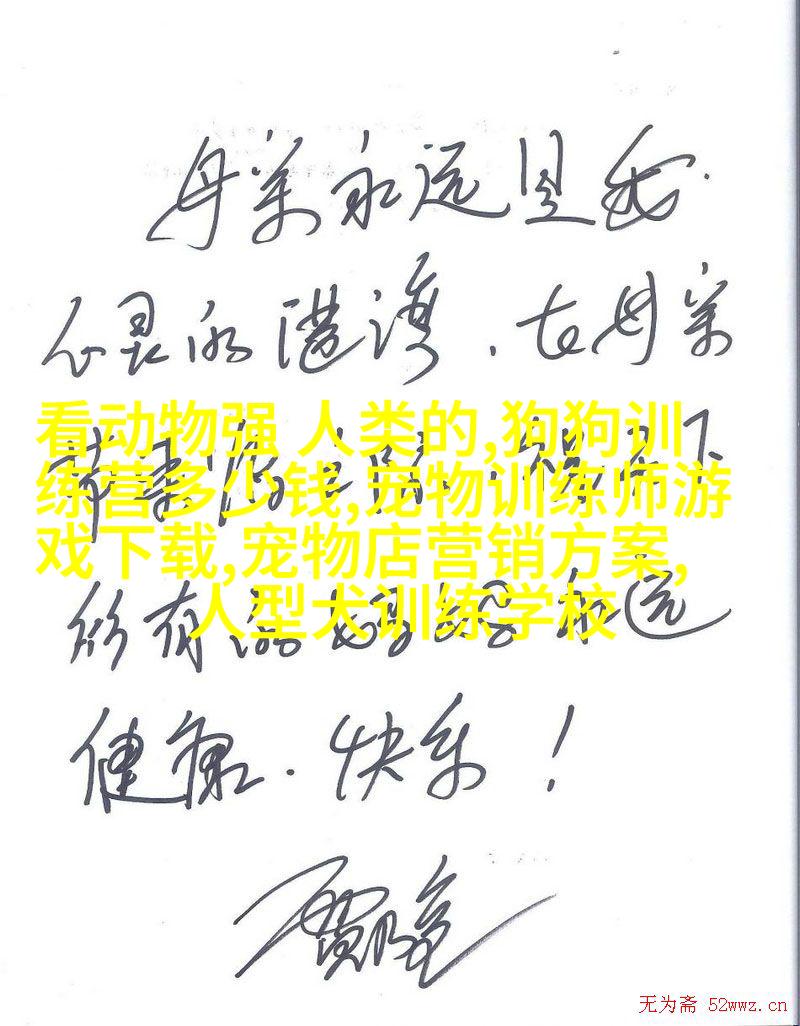 母亲永远是我
心灵的港湾，在母亲
看动物强 人类的,狗狗训
练营多少钱,宠物训练师游
戏下载,宠物店营销方案,
人型犬训练学校
节来临之际，祝天下
所有的妈妈永远
健康．快乐！
无为斋 52wwz.cn